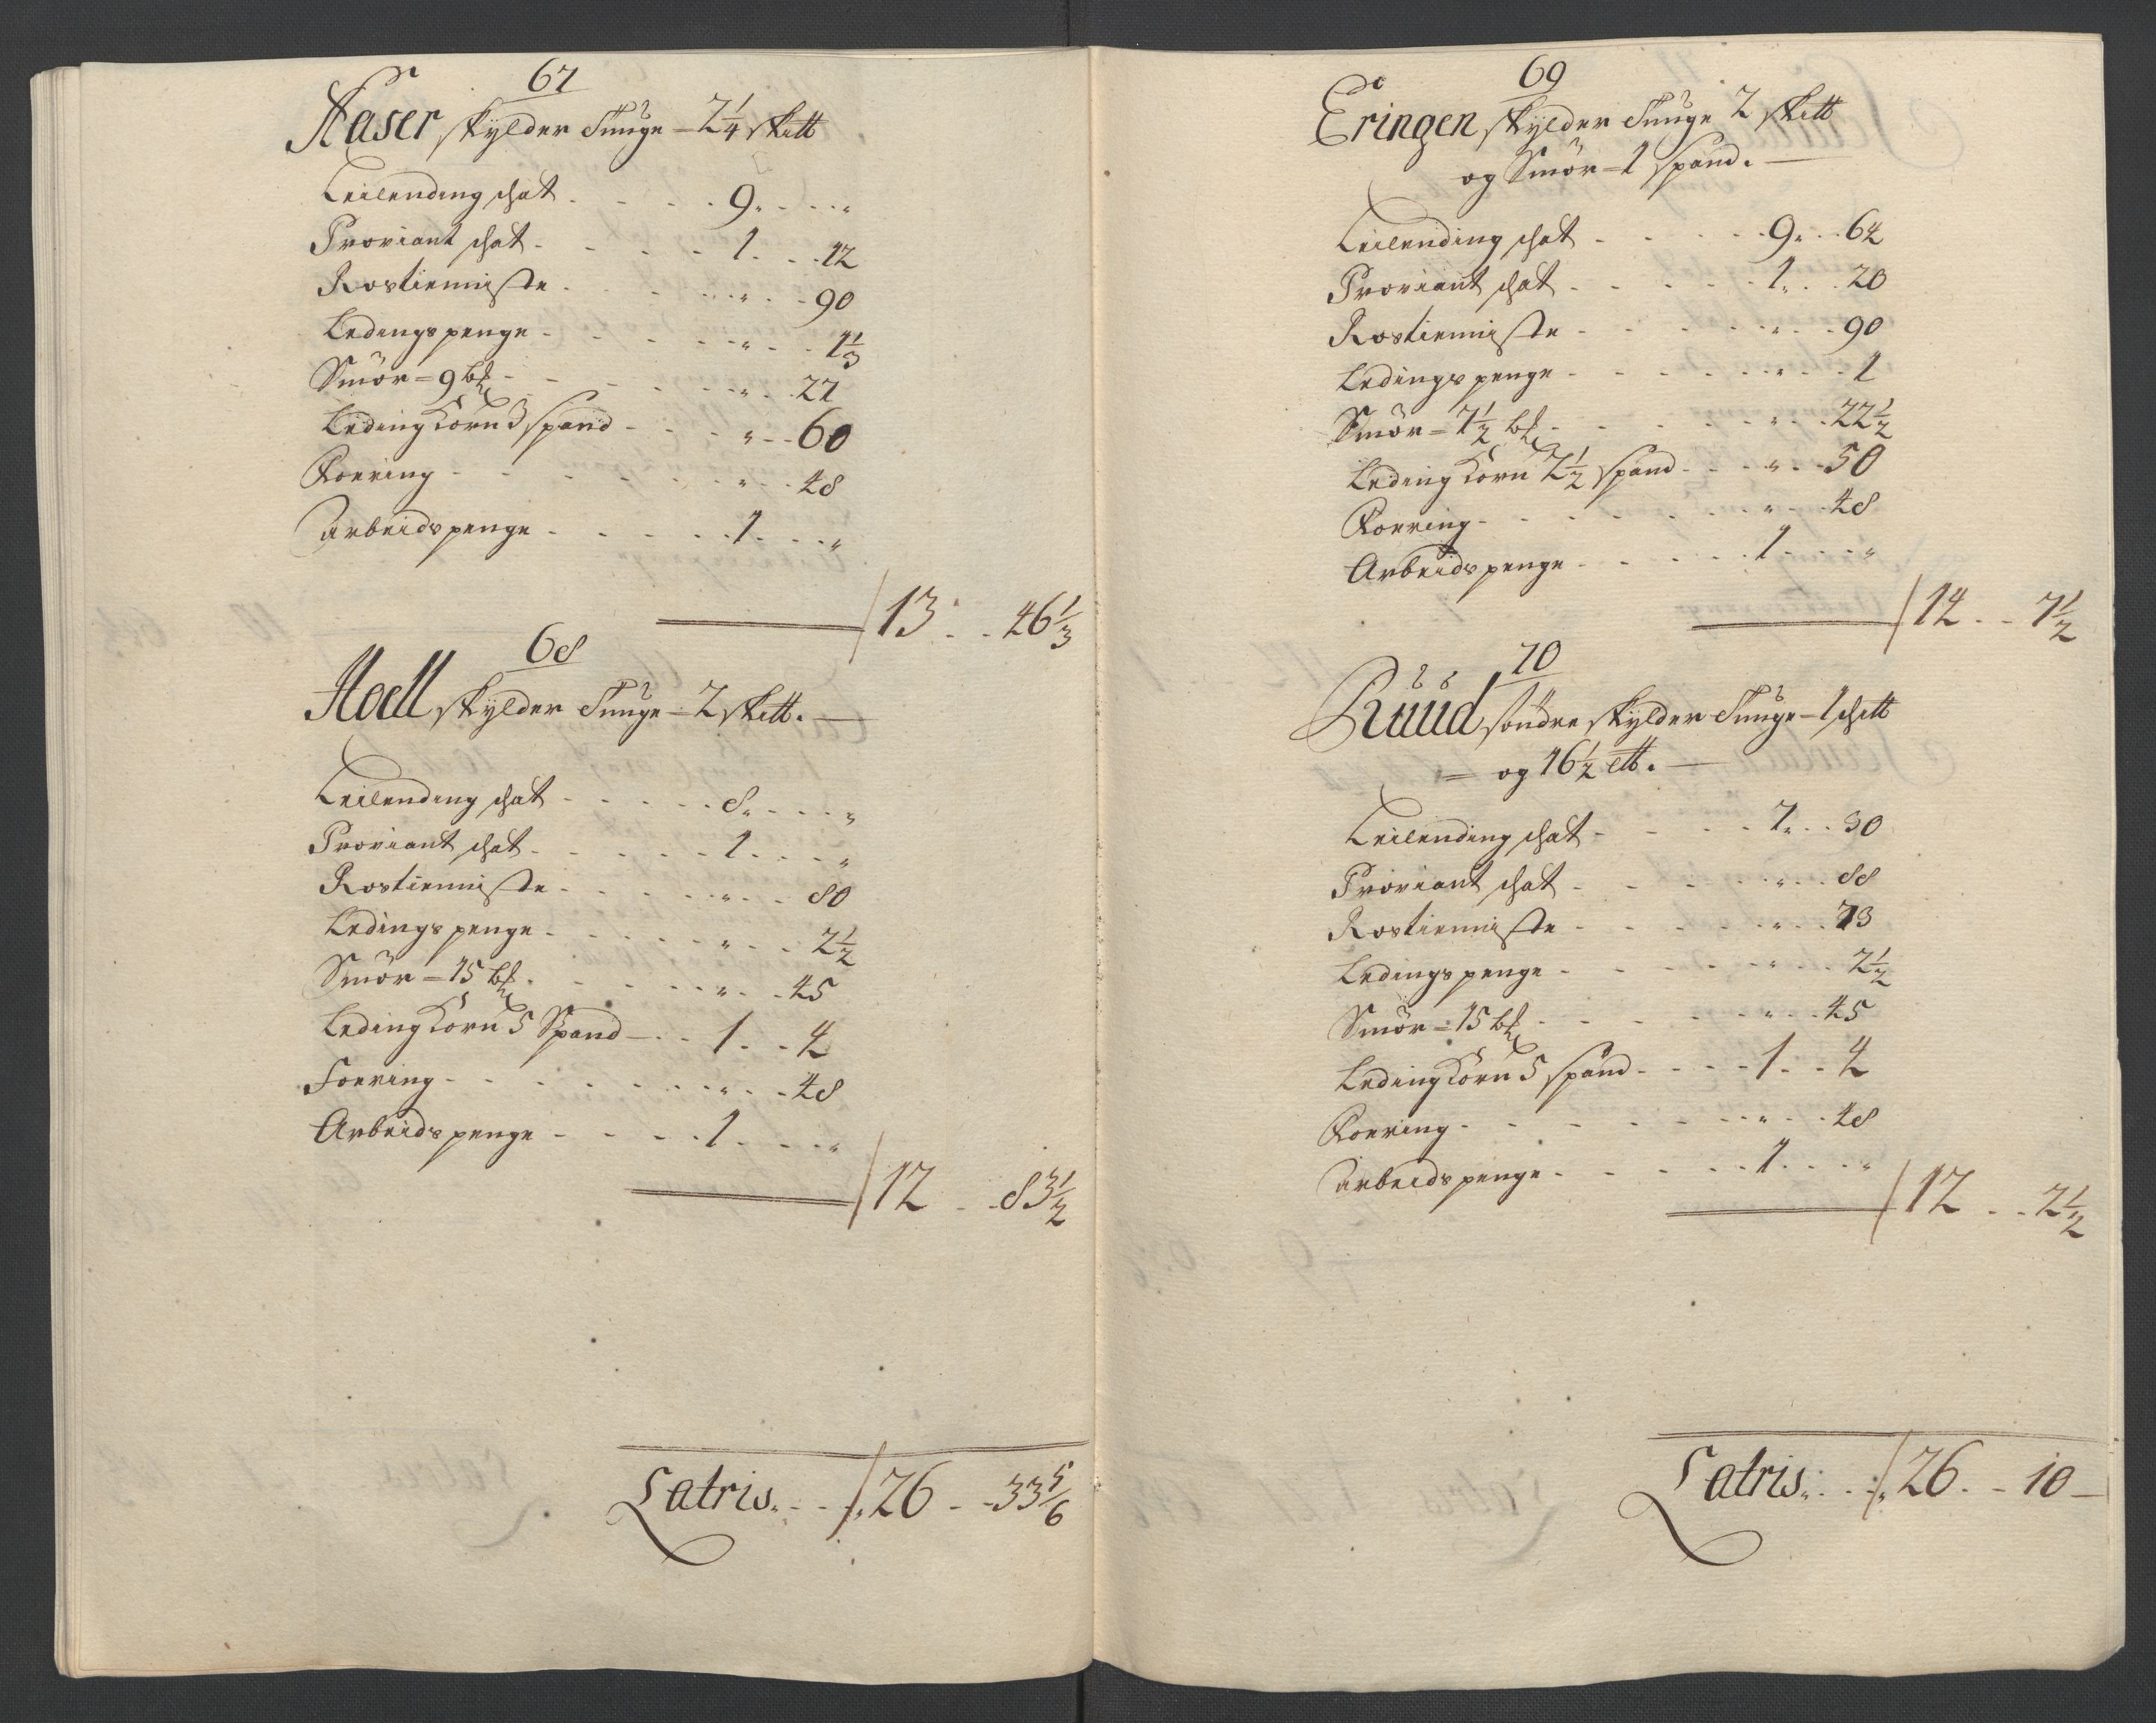 67
Aaser skylder Tunge - 2 1/4 skitt
Leilending schat - - - - 9 - - - "
Proviant schat - - - - 1 - - 12
Rostieniste - - - - " - - 90
Ledingspenge - - - - " - - 1 1/3
Smör = 9 - - - - " - - 27
Leding Korn 3 spand - - - " - - 60
Foering - - - - " - - 48
Arbeidspenge - - - - 1 - - "
13 - - 46 1/3
68
Hoell skylder Tunge - 2 skitt. —
Leilending schat - - - - 8 - - - "
Proviant schat - - - - 1 - - - "
Rostieniste - - - - " - - 80
Ledings penge - - - - " - - 2 1/2
Smör = 15 - - - - " - - 45
Leding Korn 5 Spand - - - 1 - - 4
Foering - - - - " - - 48
Arbeids penge - - - - 1 - - "
12 - - 83 1/2
Latris - - - 26 - - 33 5/6
69
Eringen skylder Tunge 2 skitt
og Smör = 1 spand. —
Leilending schat - - - - 9 - - 64
Proviant schat - - - - 1 - - 20
Rostieniste - - - - " - - 90
Ledings penge - - - - " - - 1
Smör = 7 1/2 - - - - " - - 22 1/2
Leding Korn 2 1/2 spand - - - " - - 50
Foering - - - - " - - 48
Arbeids penge - - - - 1 - - "
14 - - 7 1/2
70
Ruud söndre skylder Tunge - 1 schitt
= og 16 1/2 —
Leilending schat - - - - 7 - - 30
Proviant schat - - - - " - - 88
Rostieniste - - - - " - - 73
Ledings penge - - - - " - - 2 1/2
Smör = 15 - - - - " - - 45
Leding Korn 5 spand - - - 1 - - 4
Foering - - - - " - - 48
Arbeids penge - - - - 1 - - "
12 - - 2 1/2
Latris - - - 26 - - 10 —